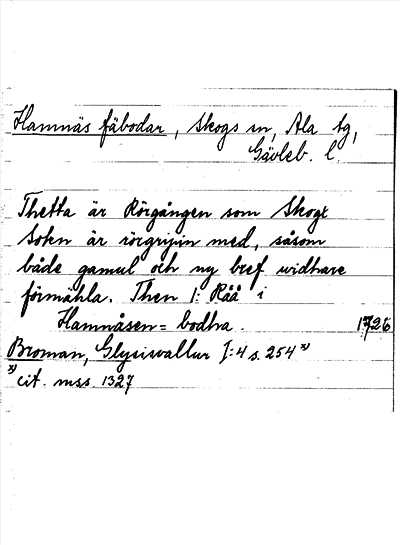 Hamnäs fäbodar, Skogs sn, Ala tg,
Gävleb. l.
Thetta är Rörgången som Skogz
Sokn är rörgripin med, såsom
både gamul och ny bref widhare
förmähla. Then 1: Råå i
Hamnåsen=bodha. 1726
Broman, Glysisvallur I:4 s. 254 x)
x) cit. mss. 1327